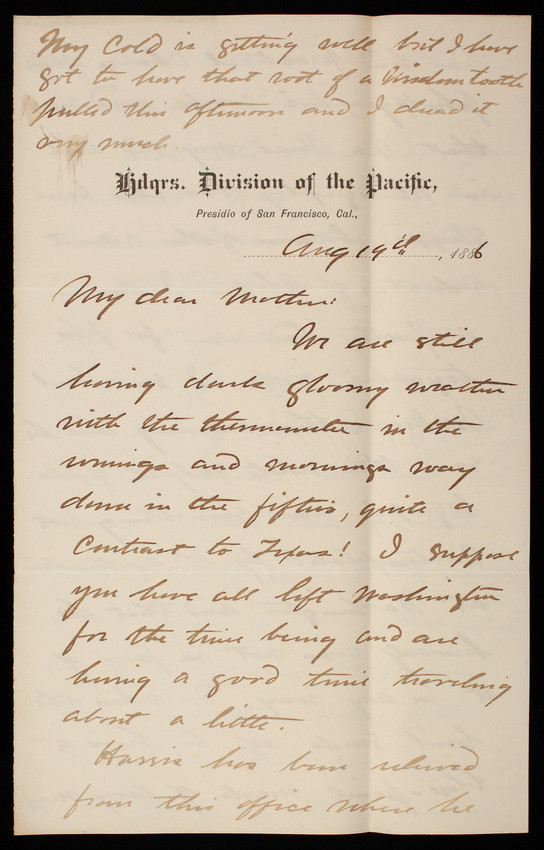 My Cold is getting well but I have
got to have that root of a Wisdom tooth
pulled this afternoon and I dread it
very much.
Hdqrs. Division of the Pacific,
Presidio of San Francisco, Cal.,
Aug 19th, 1886
My dear Mother:
We are still
having dark gloomy weather
with the thermometer in the
evenings and mornings way
down in the fifties, quite a
Contrast to Texas! I suppose
you have all left Washington
for the time being and are
having a good time traveling
about a little.
Harris has been relieved
from this office where he